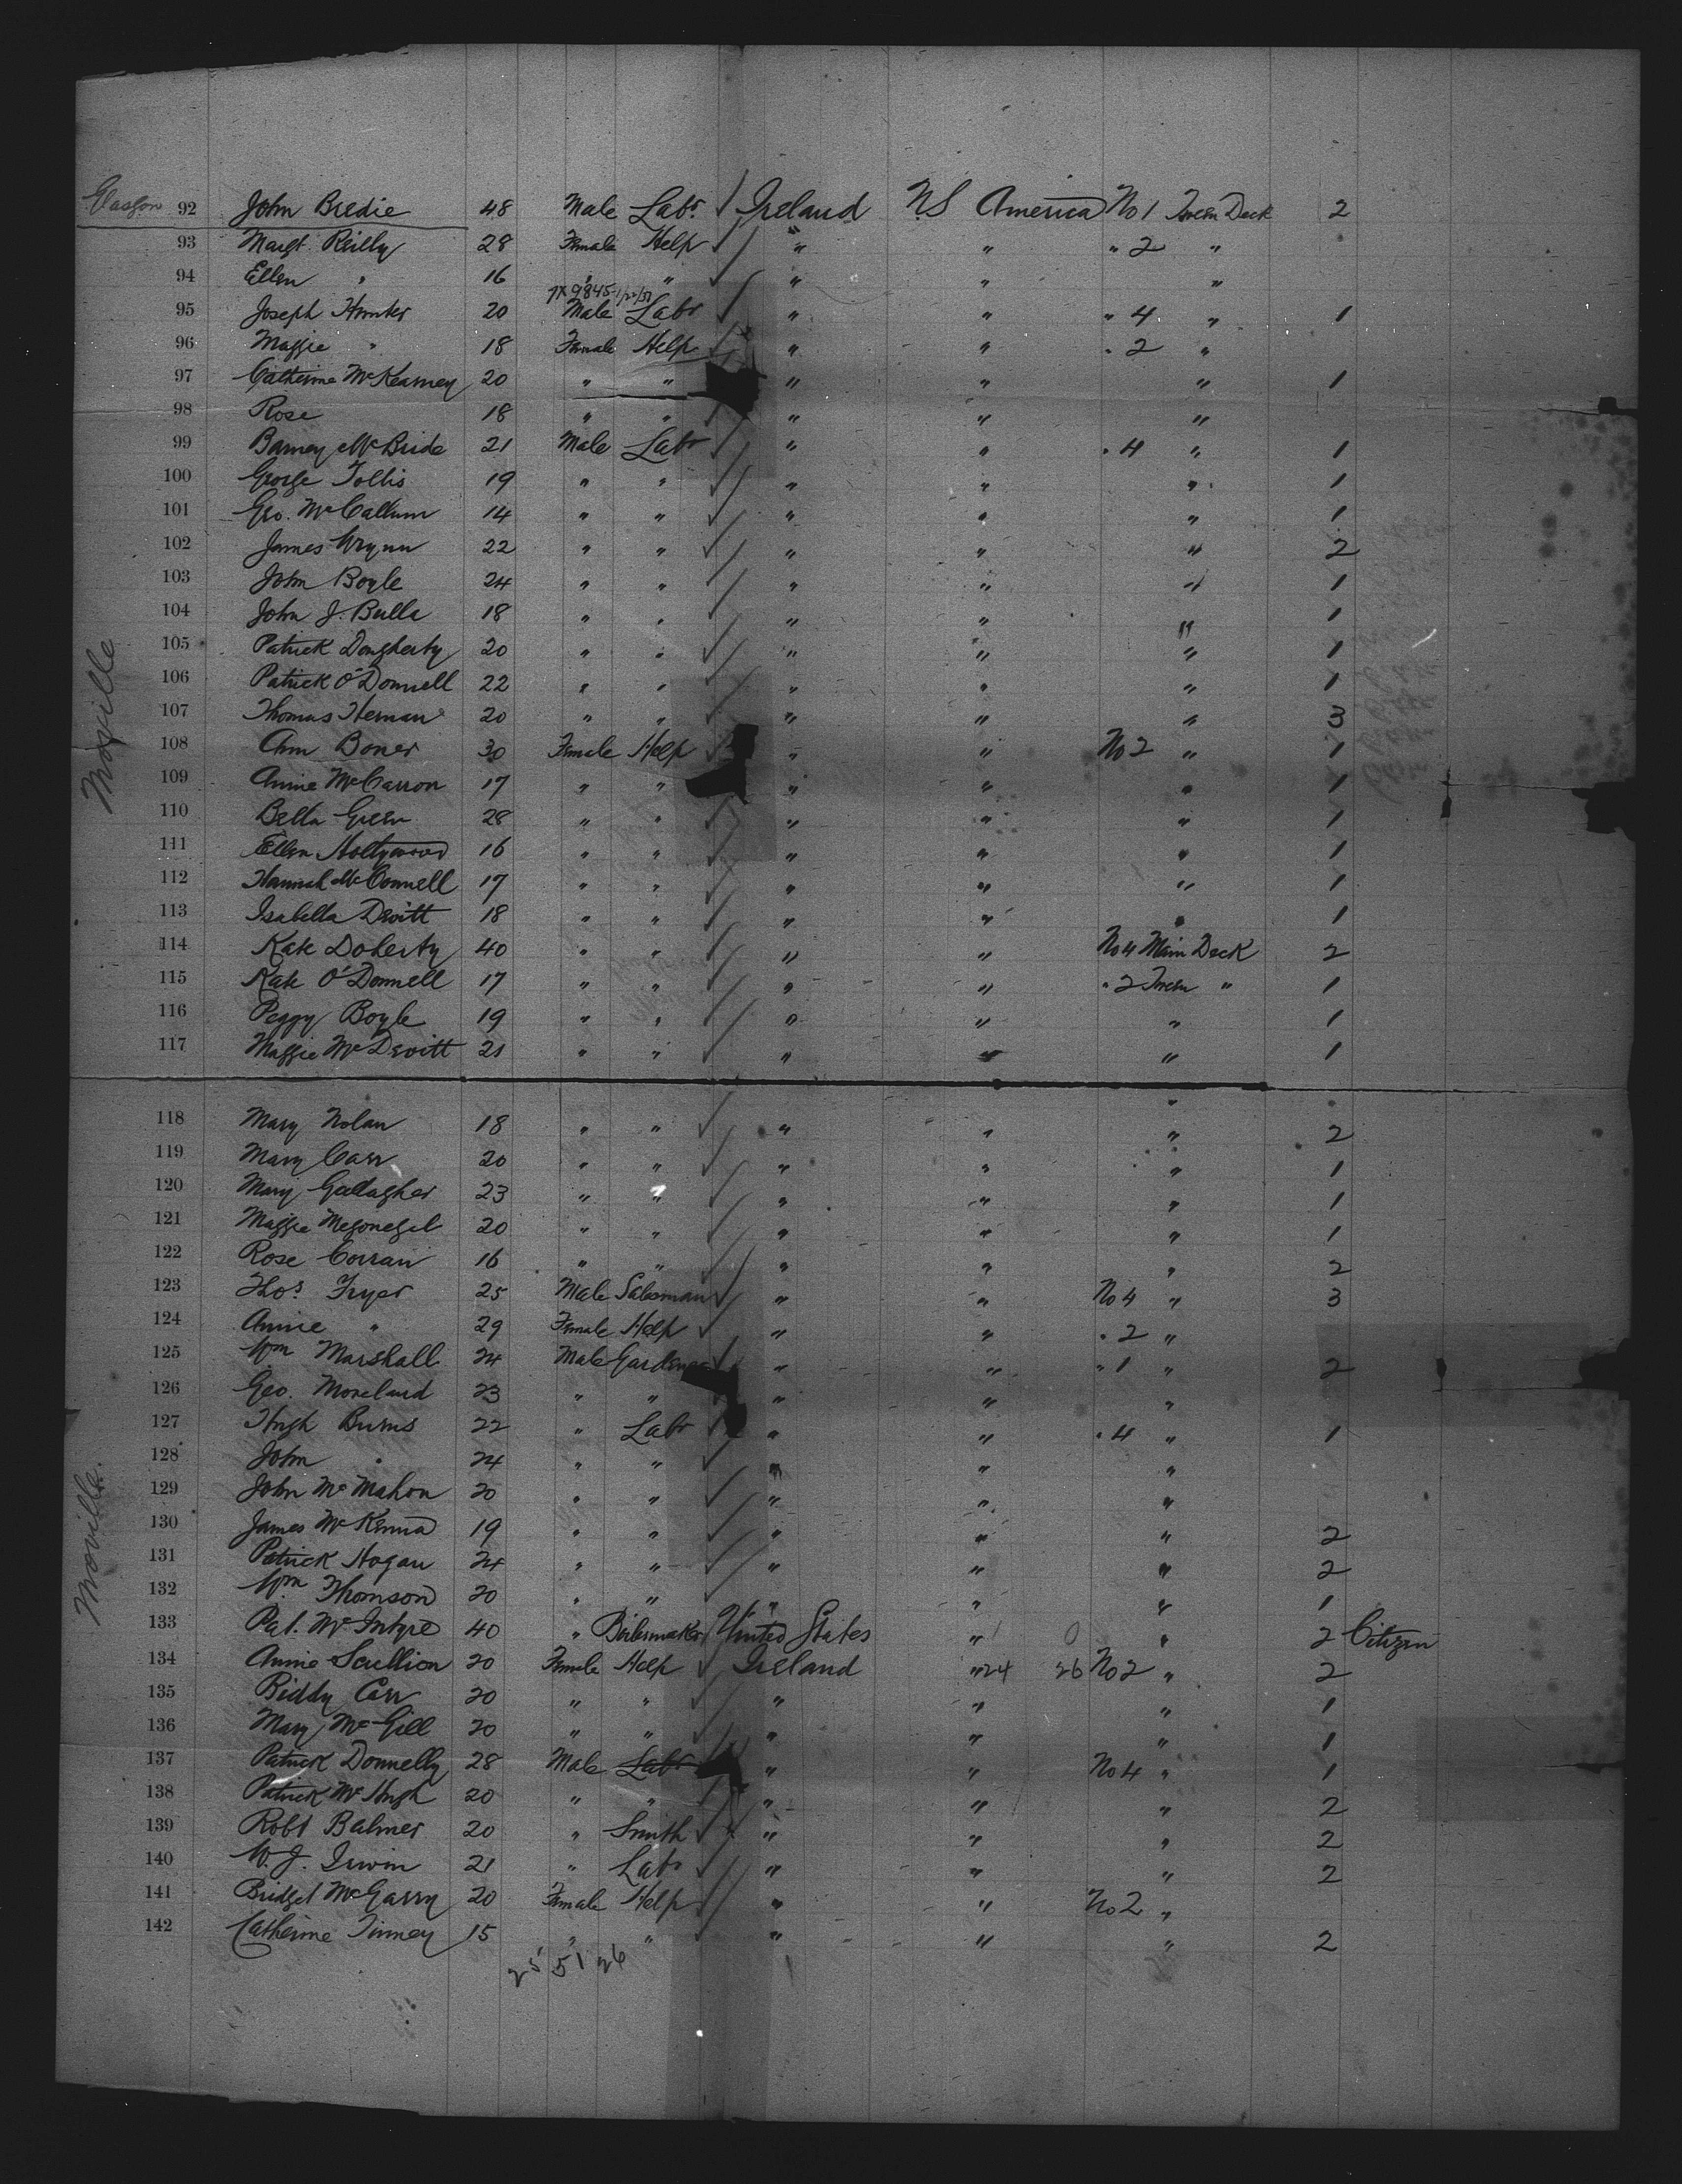 Glasgow 92 John Bredie 48 Male Labr ✓ Ireland US America No 1 Tween Deck 2
93 Margt Reilly 28 Female Help ✓ " " " 2 "
94 Ellen " 16 " " ✓ " " "
7X9845
95 Joseph Hunter 20 Male Labr ✓ " " " 4 " 1
96 Maggie " 18 Female Help ✓ " " " 2 "
97 Catherine McKearney 20 " " " " " 1
98 Rose 18 " " ✓ " " "
99 Barney McBride 21 Male Labr ✓ " " " 4 " 1
100 George Tollis 19 " " ✓ " " " 1
101 Geo. McCallum 14 " " ✓ " " " 1
102 James Wynn 22 " " ✓ " " " 2
103 John Boyle 24 " " ✓ " " " 1
104 John J. Bulla 18 " " ✓ " " " 1
105 Patrick Dougherty 20 " " ✓ " " " 1
Moville
106 Patrick O'Donnell 22 " " ✓ " " " 1
107 Thomas Heman 20 " " ✓ " " " 3
108 Ann Boner 30 Female Help ✓ " " No 2 " 1
109 Annie McCarron 17 " " " " " 1
110 Bella Green 28 " " ✓ " " " 1
111 Ellen Hollywood 16 " " ✓ " " " 1
112 Hannah McConnell 17 " " ✓ " " " 1
113 Isabella Devitt 18 " " ✓ " " " 1
114 Kate Doherty 40 " " ✓ " " No 4 Main Deck 2
115 Kate O'Donnell 17 " " ✓ " " " 2 Tween " 1
116 Peggy Boyle 19 " " ✓ " " " 1
117 Maggie McDevitt 21 " " ✓ " " " 1
118 Mary Nolan 18 " " ✓ " " " 2
119 Mary Carr 20 " " ✓ " " " 1
120 Mary Gallagher 23 " " ✓ " " " 1
121 Maggie Megonegil 20 " " ✓ " " " 1
122 Rose Corran 16 " " ✓ " " " 2
123 Thos. Fryer 25 Male Salesman ✓ " " No 4 " 3
124 Annie " 29 Female Help ✓ " " " 2 "
125 Wm Marshall 24 Male Gardener ✓ " " " 1 " 2
126 Geo. Moreland 23 " " " " "
127 Hugh Burns 22 " Labr ✓ " " " 4 " 1
128 John " 24 " " ✓ " " "
129 John McMahon 20 " " ✓ " " "
Moville.
130 James McKenna 19 " " ✓ " " " 2
131 Patrick Hogan 24 " " ✓ " " " 2
132 Wm Thomson 20 " " ✓ " " " 1
133 Pat. McIntyre 40 " Boilermaker ✓ United States " 1 0 " 2 Citizen
134 Annie Scullion 20 Female Help ✓ Ireland " 24 26 No 2 " 2
135 Biddy Carr 20 " " ✓ " " " 1
136 Mary McGill 20 " " ✓ " " " 1
137 Patrick Donnelly 28 Male Labr " " No 4 " 1
138 Patrick McHugh 20 " " ✓ " " " 2
139 Robt Balmer 20 " Smith ✓ " " " 2
140 W. J. Irwin 21 " Labr ✓ " " " 2
141 Bridget McGarry 20 Female Help ✓ " " No 2 "
142 Catherine Tinney 15 " " ✓ " " " 2
25 51 26